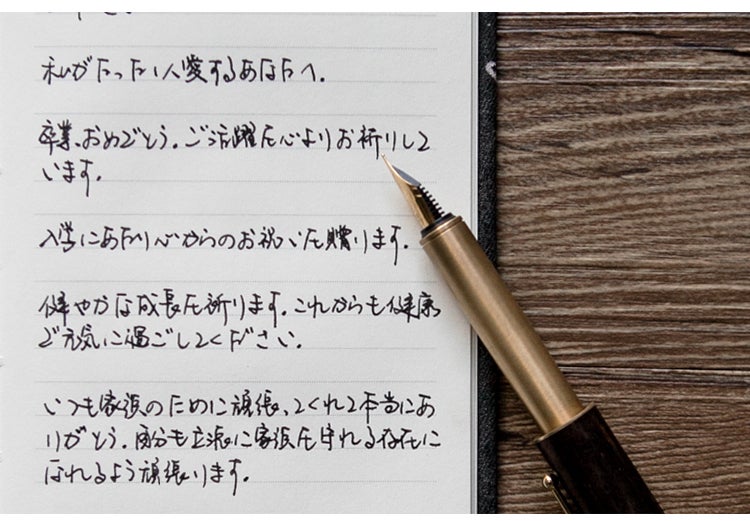 ださい
私がたった1人愛するあなたへ。
卒業、おめでとう。ご活躍を心よりお祈りして
います。
入学にあたり心からのお祝いを贈ります。
健やかな成長を祈ります。これからも健康
で元気に過ごしてください。
いつも家族のために頑張ってくれて本当にあ
りがとう。自分も立派に家族を守れる存在に
なれるよう頑張ります。